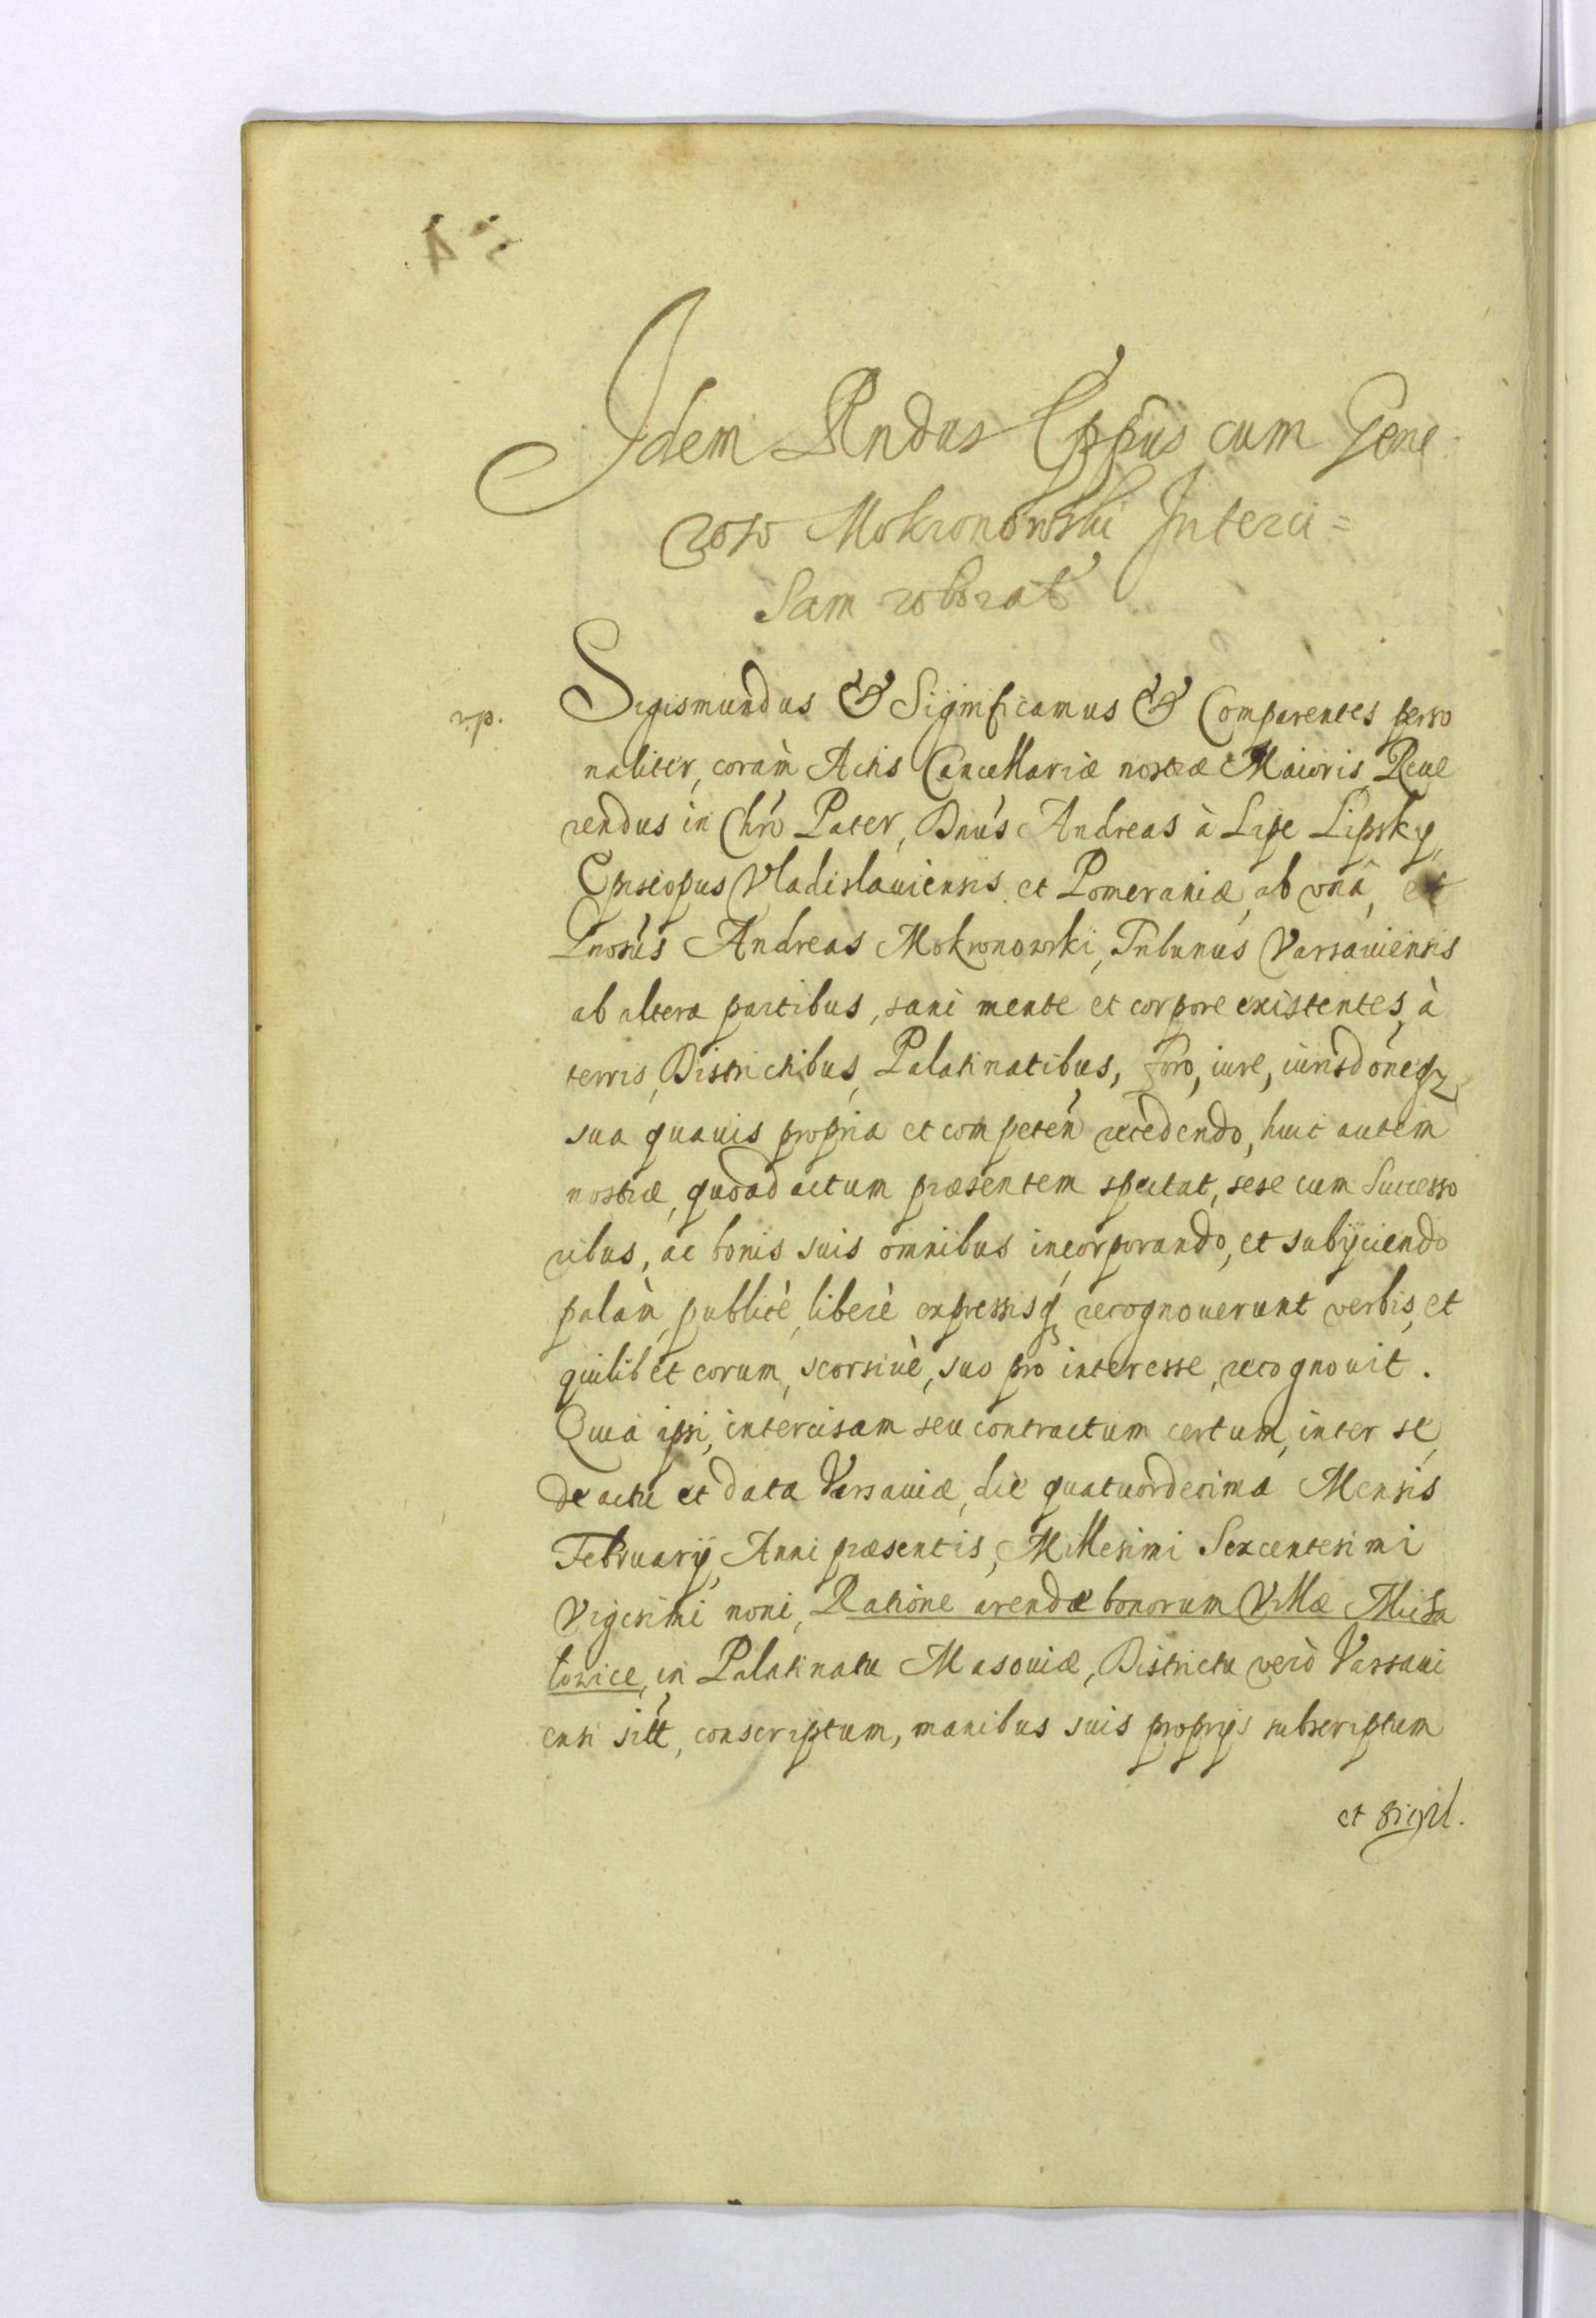 Idem Rndus Eppus cum Gene
roso Mokronowski Interci=
sam roborat
rp.
Sigismundus & Significamus & Comparentes perso
naliter, coràm Actis Cancellariæ nostræ Maioris, Reue
rendus in Chro Pater, Dnús Andreas à Lipe Lipsky,
Episcopus Vladislauiensis et Pomeraniæ, ab vnâ, et
Gnosùs Andreas Mokronowski, Tribunus Varsauiensis
ab altera partibus, sani mente et corpore existentes, à
terris, Districtibus, Palatinatibus, foro, iure, iurisdóneqz
sua quauis propria et competeń recedendo, huic autem
nostræ, quoad actum præsentem spectat, sese cum Successo
ribus, ac bonis suis omnibus incorporando, et subijciendo
palàm, publicè, liberè expressisq recognouerunt verbis, et
quilibet eorum, seorsiuè, suo pro interesse, recognouit.
Quia ipsi, intercisam seu contractum certum, inter se,
de actu et data Varsauiæ, die quatuordecima Mensis
Februarij, Anni præsentis, Millesimi Sexcentesimi
Vigesimi noni, Ratióne arendæ bonorum Villæ Micha
lowice, in Palatinatu Masouiæ, Districtu verò Varsaui
ensi sitt, conscriptum, manibus suis proprijs subscriptum
et sigil.